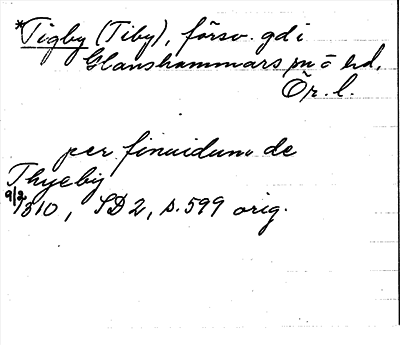 *Tigby (Tiby), försv. gd i
Glanshammars sn o hd,
Ör. l.
per finuidum de
Thyeby
9/2
1310, SD 2, s. 599 orig.